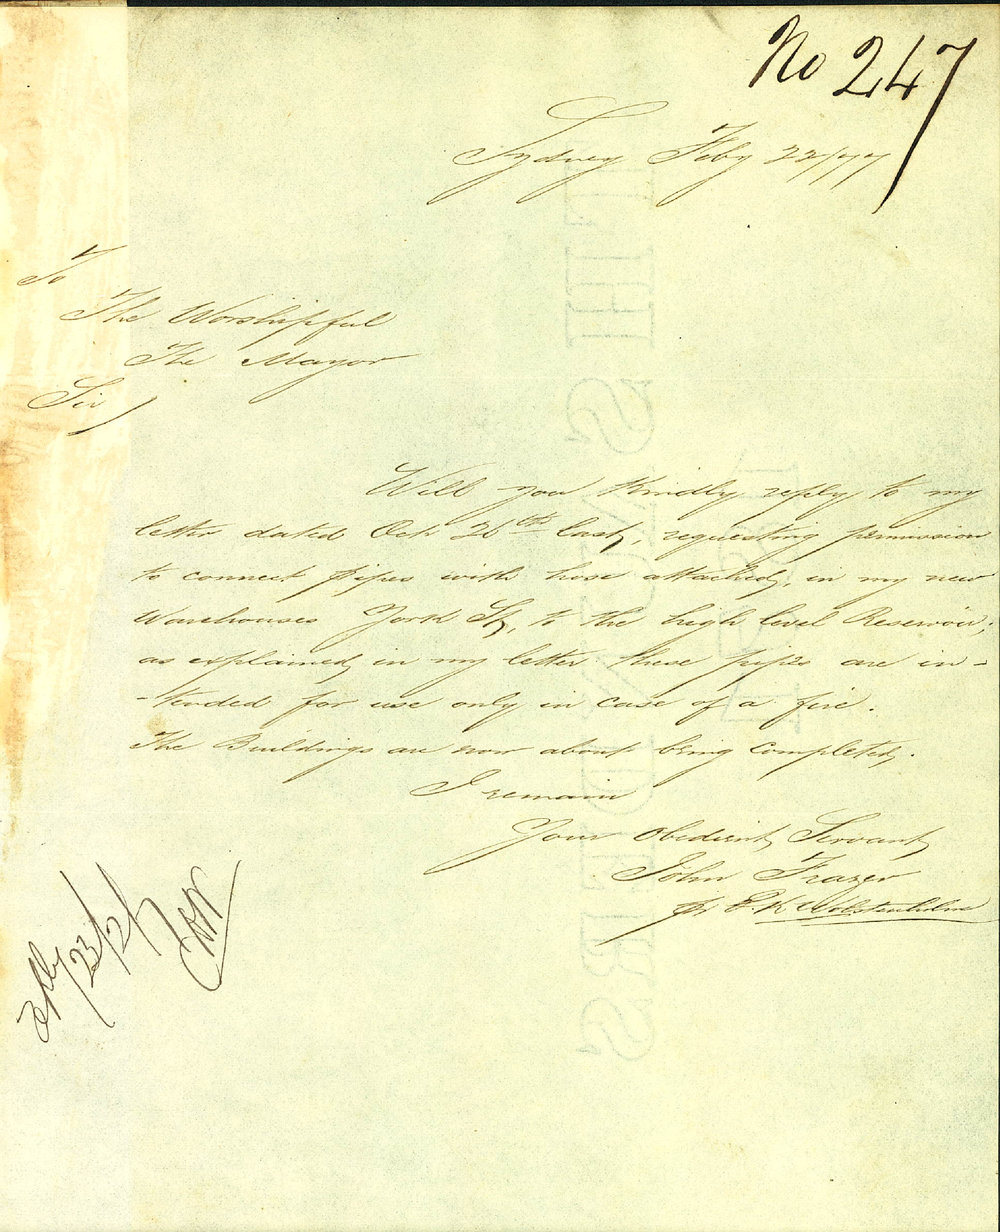 No 247
Sydney Feby 22/77
To
The Worshipful
The Mayor
Sir,
Will you kindly reply to my
letter dated Oct 26th last, requesting permission
to connect pipes with hose attached, in my new
Warehouses York St, to the high level Reservoir;
as explained in my letter these pipes are in-
-tended for use only in case of a fire.
The Buildings are now about being completed.
I remain
Your obedient Servant,
John Frazer
pr E. K Wolstenholme
23/2/